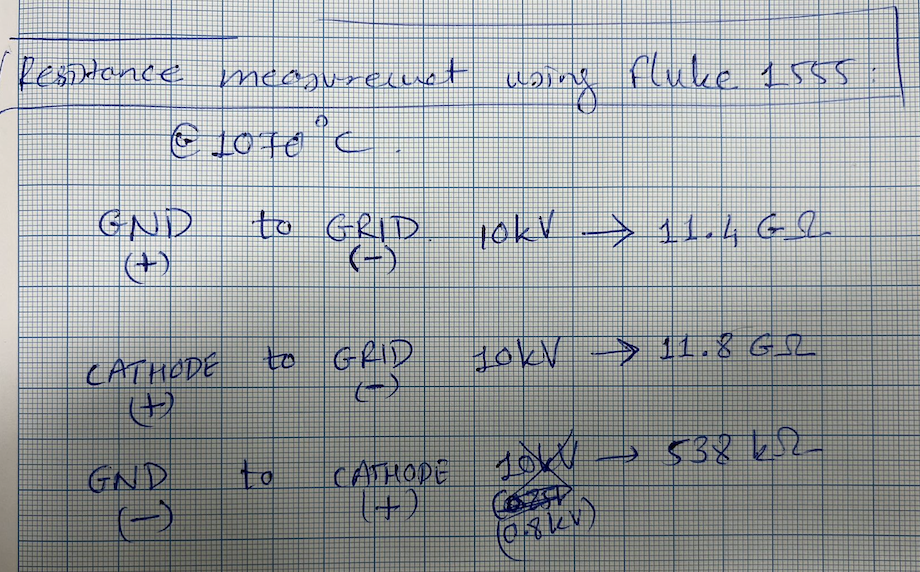 Resistance measurement using fluke 1555:
@ 1070°C.
GND to GRID. 10kV → 11.4 GΩ
(+) (-)
CATHODE to GRID 10kV → 11.8 GΩ
(+) (-)
GND to CATHODE 10kV → 538 kΩ
(-) (+)
(0.8kV)